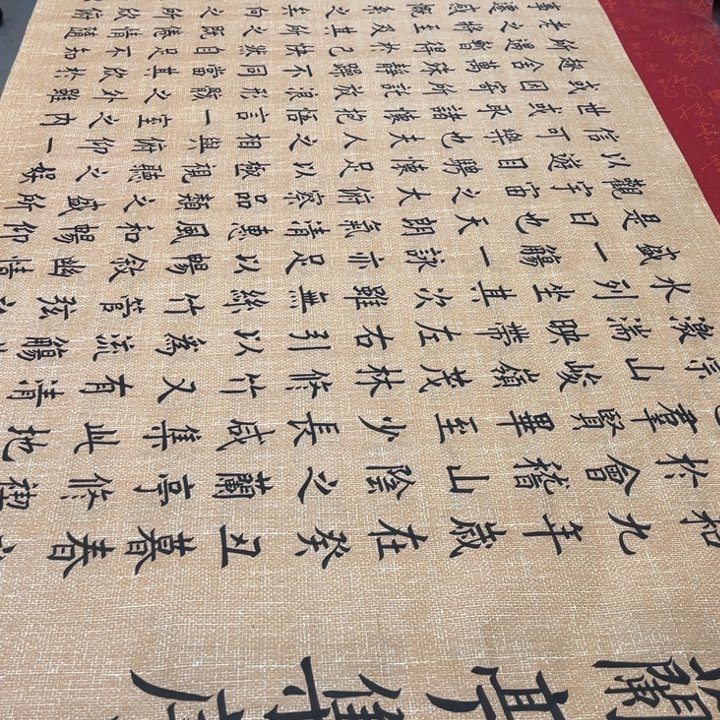 蘭亭
和九年歲在癸丑暮春
於會稽山陰之蘭亭修禊
羣賢畢至少長咸集此地
崇山峻嶺茂林修竹又有清
激湍映帶左右引以為流觴
水列坐其次雖無絲竹管弦之
盛一觴一詠亦足以暢敘幽情
是日也天朗氣清惠風和暢仰
觀宇宙之大俯察品類之盛所
以遊目騁懷足以極視聽之娛
信可樂也夫人之相與俯仰一
世或取諸懷抱悟言一室之內
或因寄所託放浪形骸之外雖
舍萬殊靜躁不同當其欣於
所遇暫得於己快然自足不知
老之將至及其所之既倦情隨
事遷感慨係之矣向之所欣俯